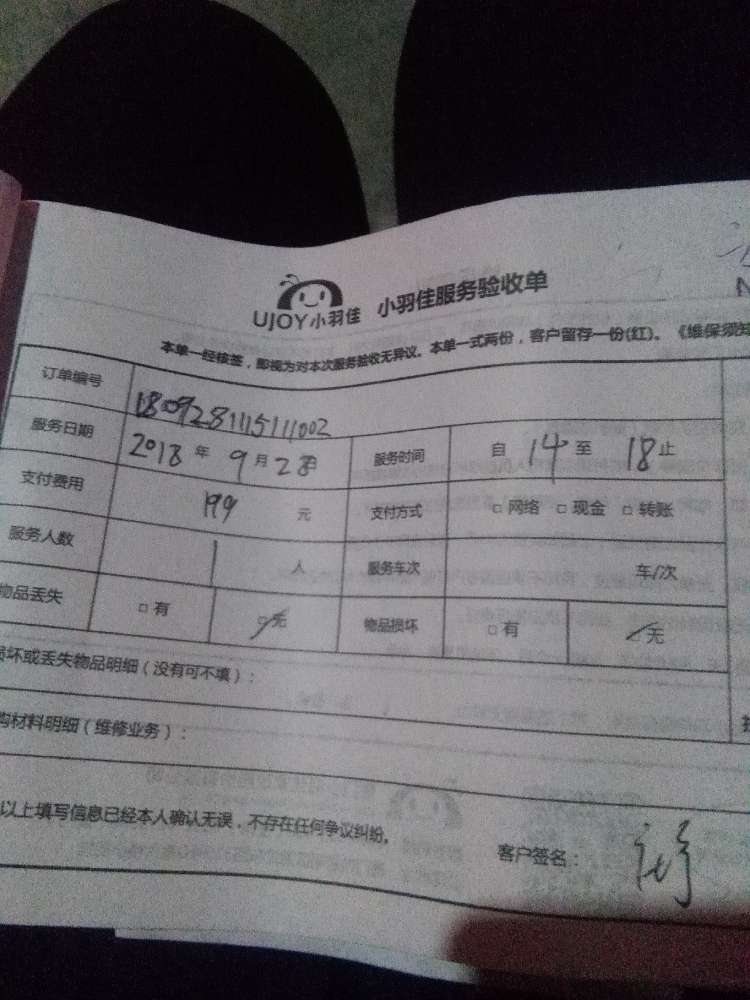 UJOY小羽佳 小羽佳服务验收单
本单一经核签，即视为对本次服务验收无异议。本单一式两份，客户留存一份(红)。《维保须知
订单编号 180928111511002
服务日期 2018年9月28日 服务时间 自14至18止
支付费用 199元 支付方式 □网络 □现金 □转账
服务人数 1人 服务车次 车/次
物品丢失 □有 □无 物品损坏 □有 无
损坏或丢失物品明细（没有可不填）：
购材料明细（维修业务）：
以上填写信息已经本人确认无误，不存在任何争议纠纷。
客户签名：